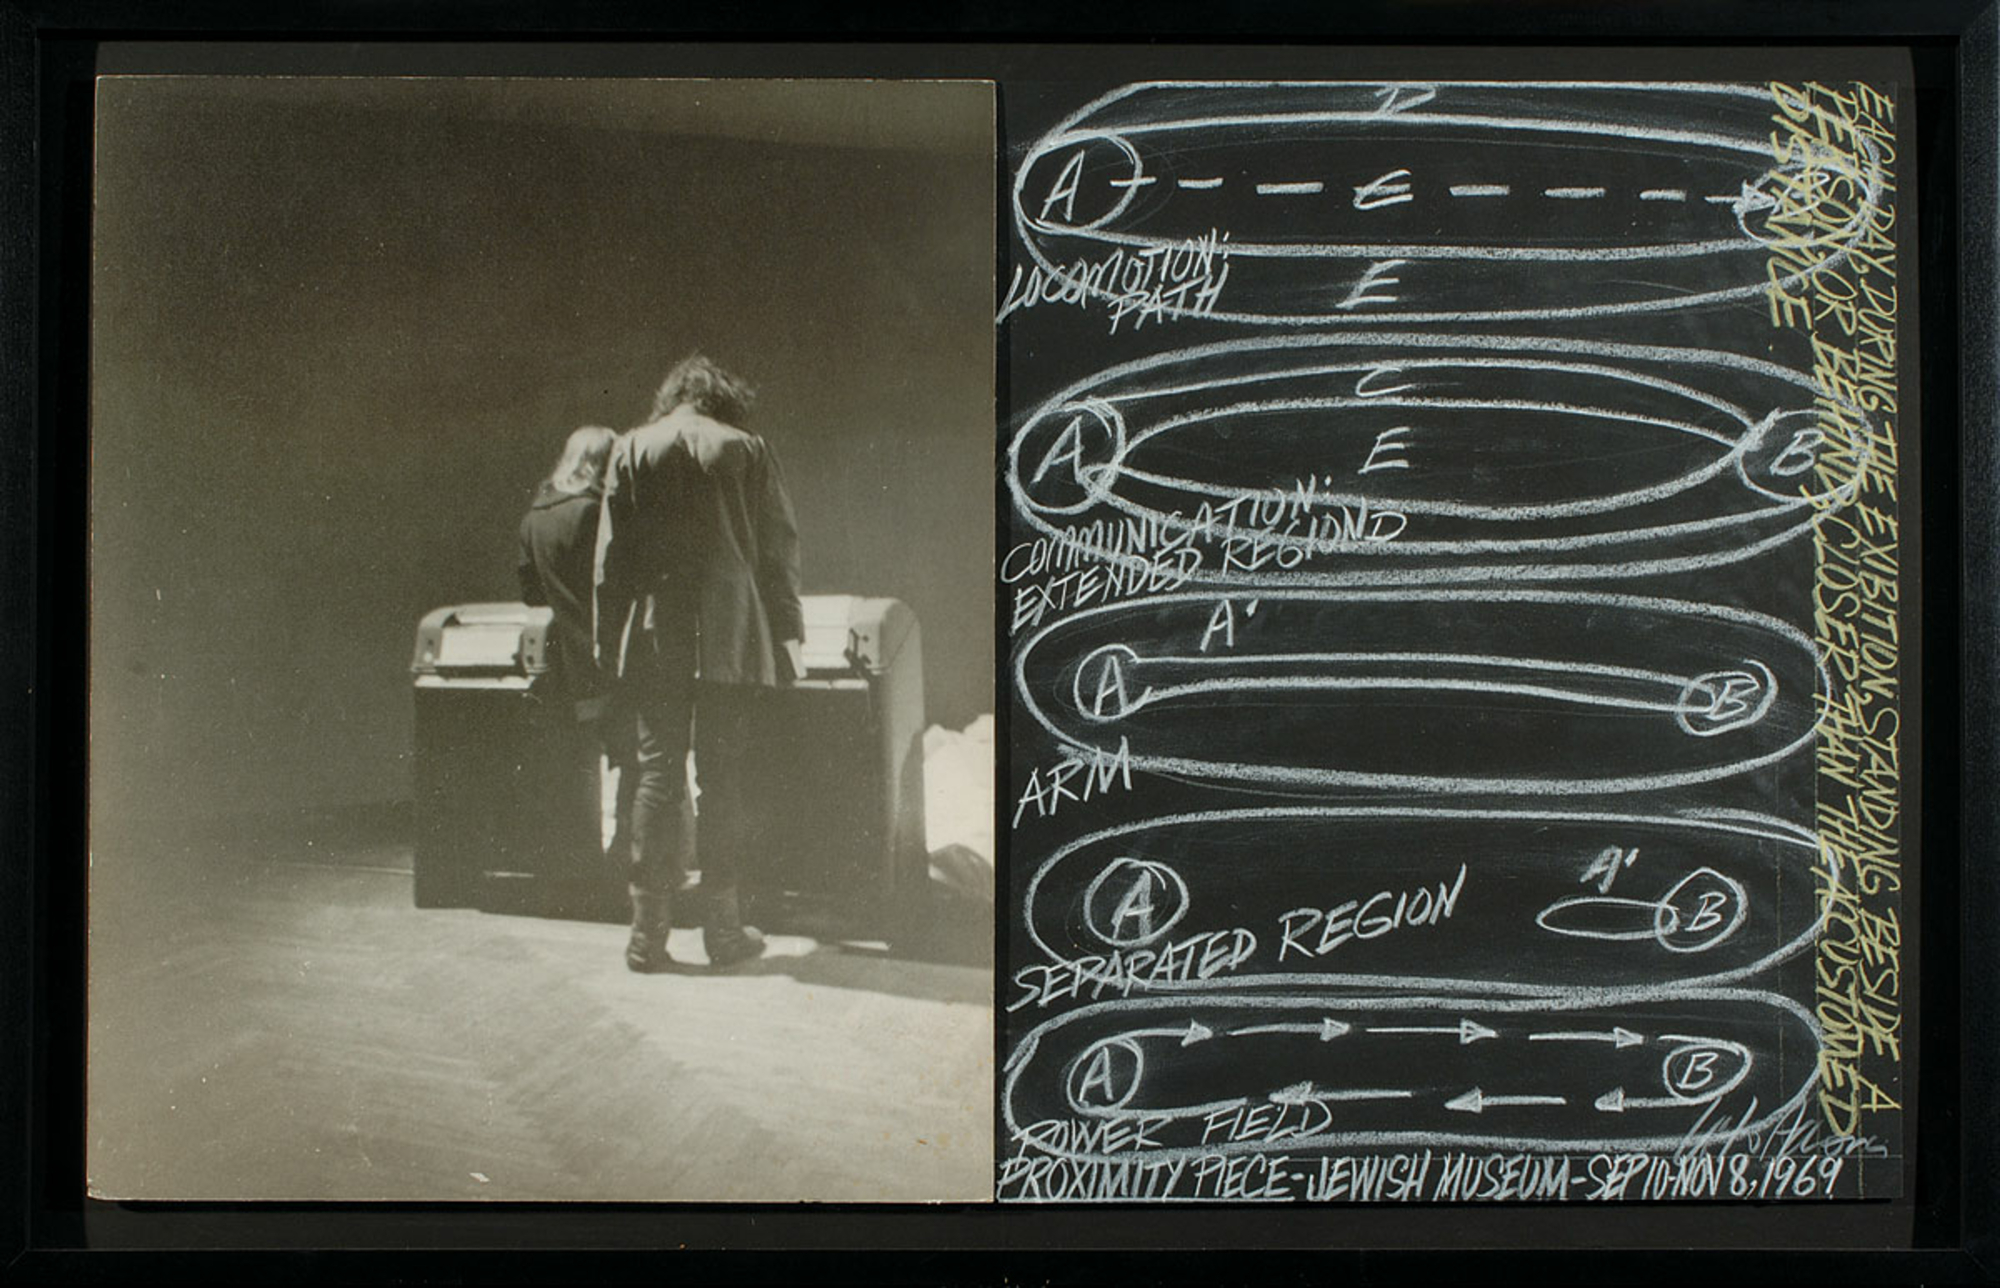 D
A E
LOCOMOTION:
PATH
E
C
A E B
COMMUNICATION:
EXTENDED REGIOND
A'
A B
ARM
A'
A B
SEPARATED REGION
A B
POWER FIELD
PROXIMITY PIECE-JEWISH MUSEUM-SEP10-NOV 8, 1969
EACH DAY DURING THE EXIBITION, STANDING BESIDE A
PERSON OR BEHIND, CLOSER THAN THE ACCUSTOMED
DISTANCE